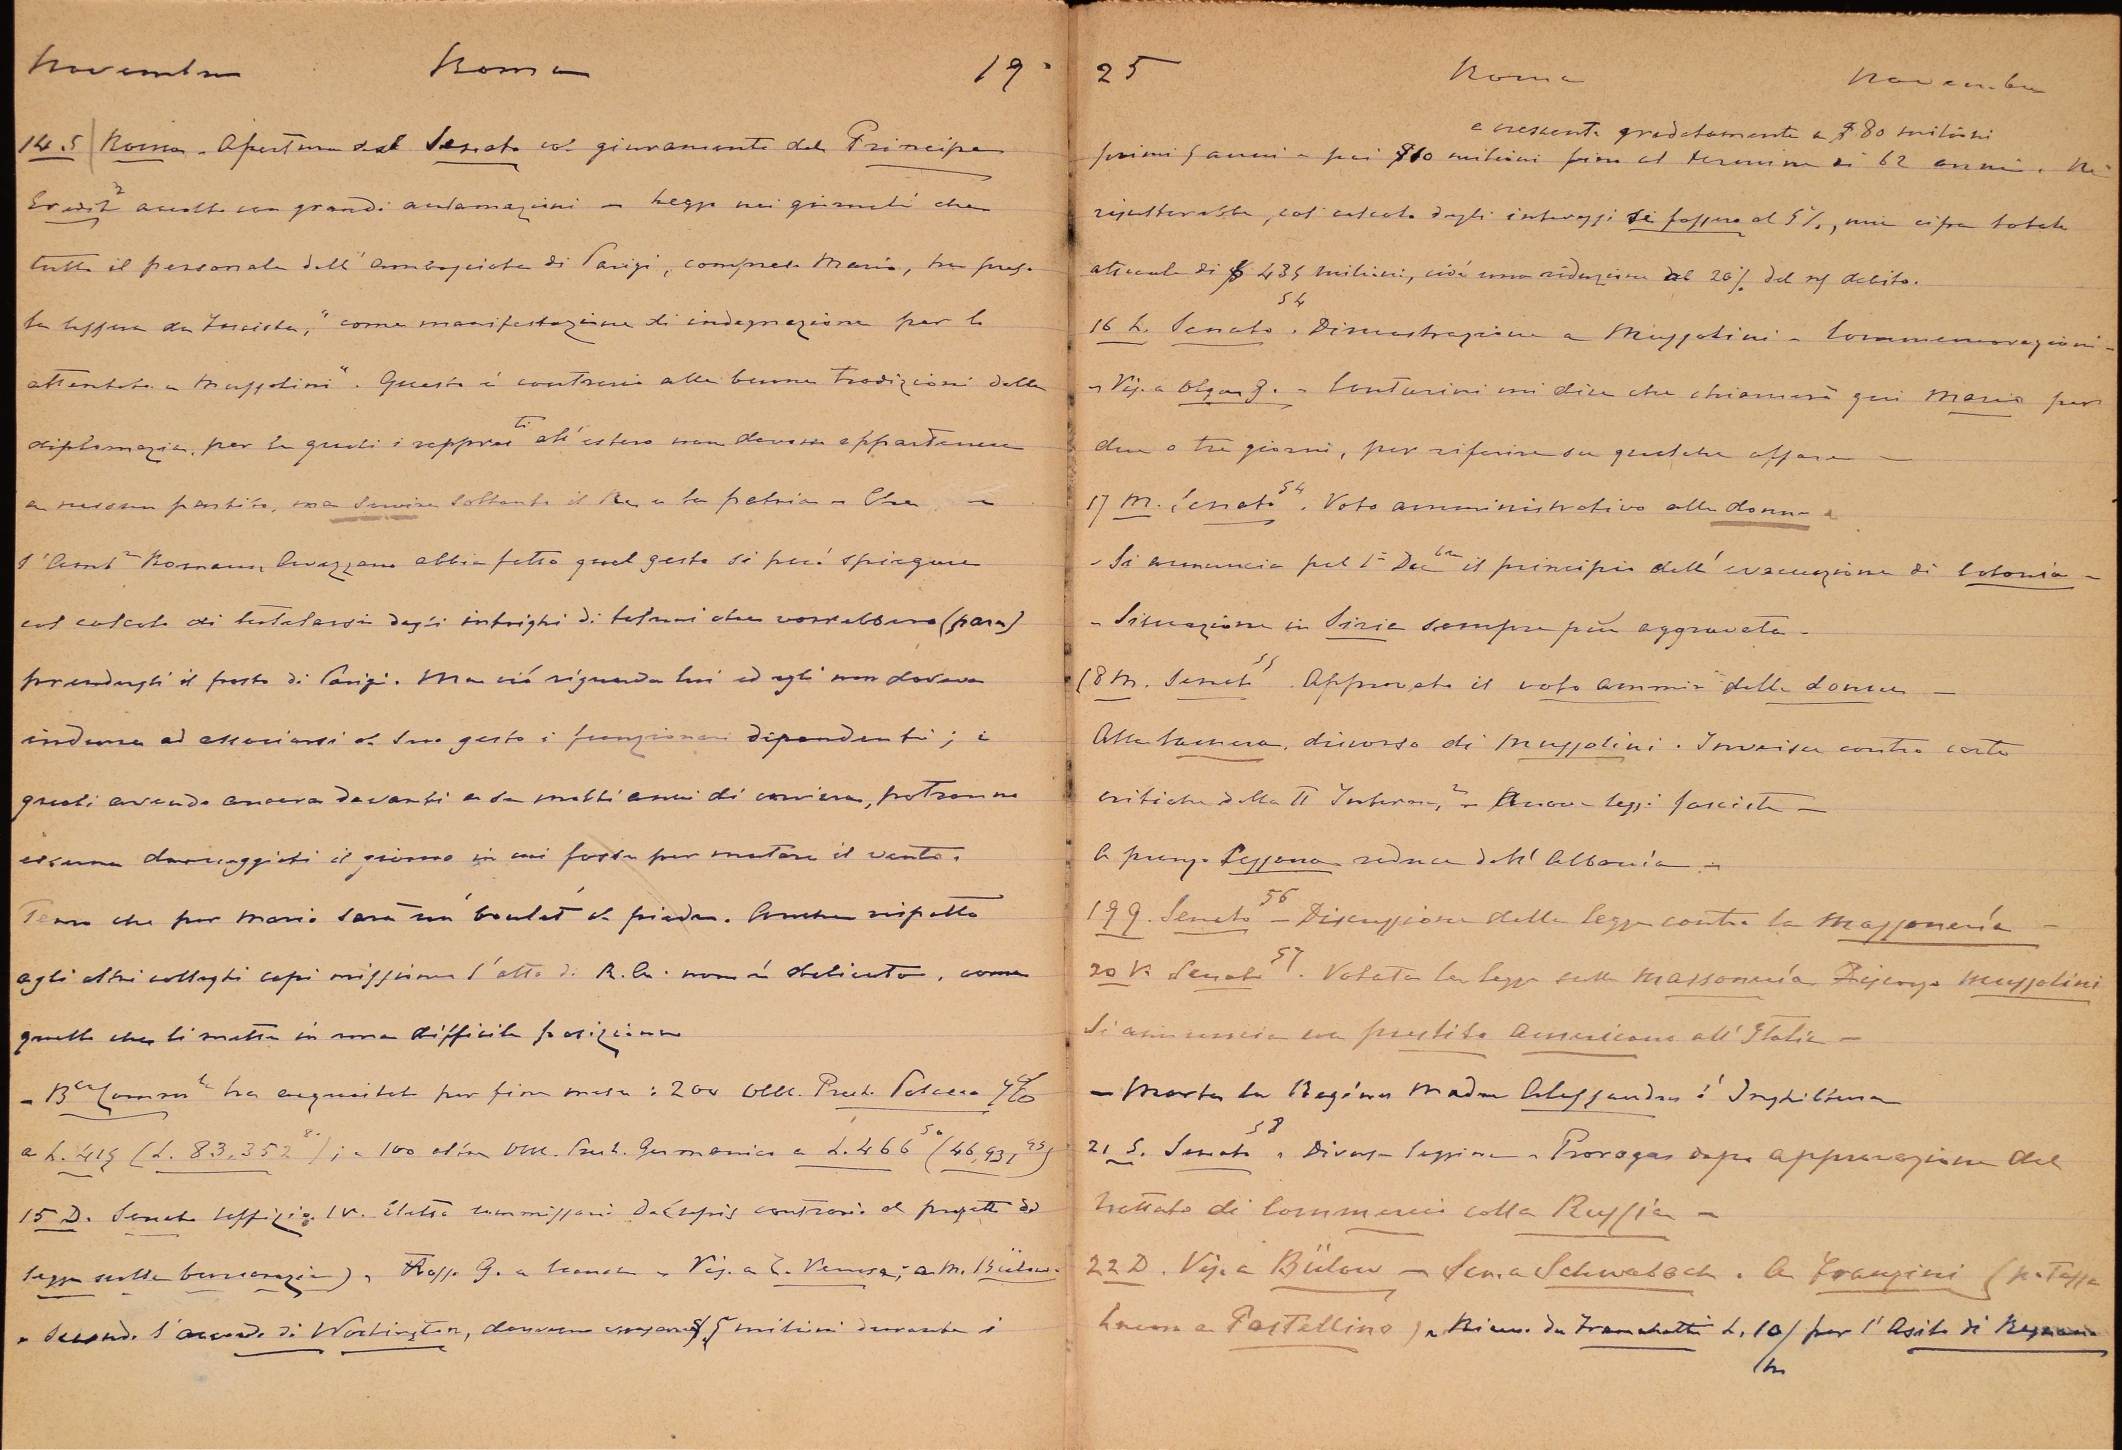 Novembre Roma 19
14.S Roma. Apertura del Senato col giuramento del Principe
Eredit.º accolto con grandi acclamazioni – Leggo nei giornali che
tutto il personale dell'ambasciata di Parigi, compreso Mario, ha preso
la tessera da fascista, "come manifestazione di indegnazione per lo
attentato a Mussolini". Questo è contrario alle buone tradizioni della
diplomazia, per le quali i rappres.ti all'estero non devono appartenere
a nessun partito, ma servire soltanto il Re e la patria – Che –
l'Amb.re Romano Avezzana abbia fatto quel gesto si può spiegare
col calcolo di tutelarsi dagli intrighi di taluni che vorrebbero (pare)
prendergli il posto di Parigi. Ma ciò riguarda lui ed egli non doveva
indurre ad associarsi al suo gesto i funzionari dipendenti; i
quali avendo ancora davanti a sè molti anni di carriera, potranno
essere danneggiati il giorno in cui fosse per mutare il vento.
Temo che per Mario sarà un boulet al piede. Anche rispetto
agli altri colleghi capi missione l'atto di R.A. non è delicato, come
quello che li mette in una difficile posizione
– B.ca Comm.le ha acquistato per fine mese: 200 Obb. Prest. Polacco 7%
a L. 415 (L. 83,352 80); – 100 altre Obb. Prest. Germanico a L. 466 50 (46,931 95)
15 D. Senato uffizio IV. eletto commissari contrario al progetto di
legge sulla burocrazia) – G. a – Vis. a V. Venosa; a M. Bülow.
– Secondo l'accordo di Washington, dovremo versare $ 5 milioni durante i
25 Roma Novembre
e crescente gradatamente a $ 80 milioni
primi 5 anni – poi milioni fino al termine di 62 anni. Ne
risulterebbe, col calcolo degli interessi se fossero al 5%, una cifra totale
attuale di $ 435 milioni, cioè una riduzione del 26% del ns/ debito.
16 L. Senato 54. Dimostrazione a Mussolini – Commemorazioni –
– Vis. a Olga – Contarini mi dice che chiamerà qui Mario per
due o tre giorni, per riferire su qualche affare –
17 M. Senato 54. Voto amministrativo alle donne –
– Si annuncia pel 1º Dec.bre il principio dell'evacuazione di Colonia –
– Situazione in Siria sempre più aggravata –
18 M. Senato 55. Approvato il voto ammin.º delle donne –
Alla Camera, discorso di Mussolini. Inveisce contro certe
critiche della II Internaz.le – Nuove leggi fasciste –
A pranzo reduce dall'Albania –
19 G. Senato 56 – Discussione della legge contro la Massoneria –
20 V. Senato 57. Votata la legge sulla Massoneria Discorso Mussolini
Si annuncia un prestito americano all'Italia –
– Morta la Regina Madre Alessandra d'Inghilterra
21 S. Senato 58. Diverse leggine – Proroga dopo approvazione del
trattato di Commercio colla Russia –
22 D. Vis. a Bülow – Sen. a Schwabach. A Franzini (p. Tassa
a Postellino) – Ricev. da Franchetti L. 10/m per l'Asilo di